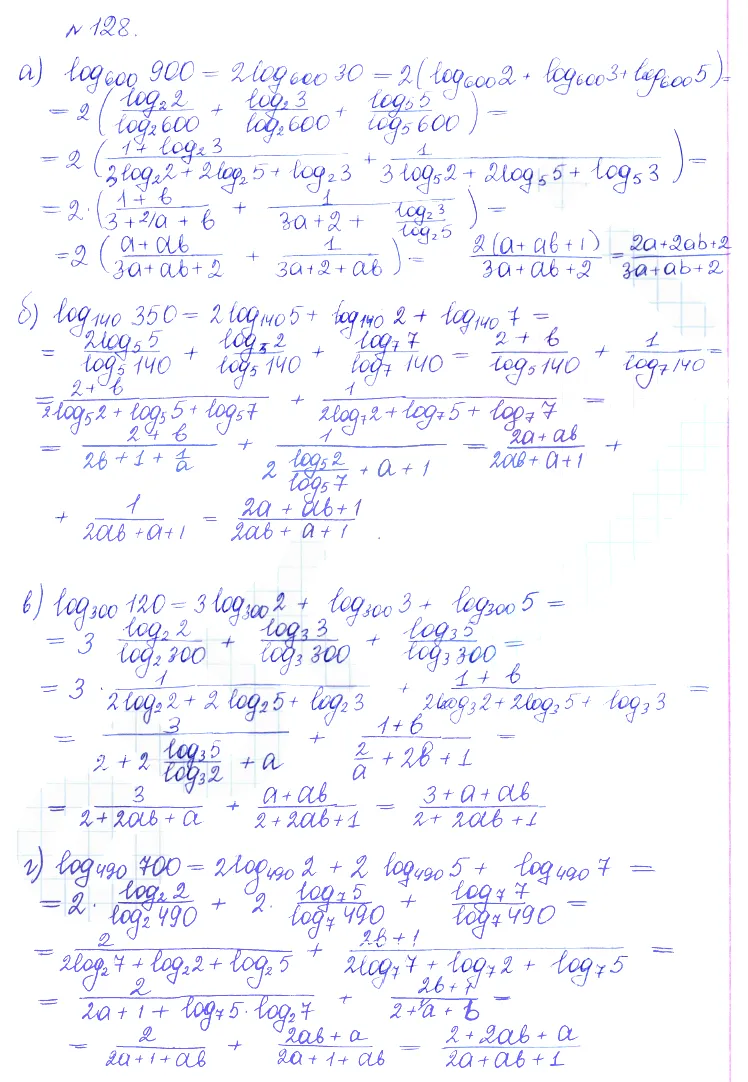 № 128.
а) log₆₀₀ 900 = 2log₆₀₀ 30 = 2(log₆₀₀2 + log₆₀₀3 + log₆₀₀5) =
= 2 (log₂2/log₂600 + log₂3/log₂600 + log₅5/log₅600) =
= 2 ((1 + log₂3)/(3log₂2 + 2log₂5 + log₂3) + 1/(3log₅2 + 2log₅5 + log₅3)) =
= 2 · ((1 + b)/(3 + 2/a + b) + 1/(3a + 2 + log₂3/log₂5)) =
= 2 ((a + ab)/(3a + ab + 2) + 1/(3a + 2 + ab)) = 2(a + ab + 1)/(3a + ab + 2) = (2a + 2ab + 2)/(3a + ab + 2)
б) log₁₄₀ 350 = 2log₁₄₀5 + log₁₄₀ 2 + log₁₄₀ 7 =
= 2log₅5/log₅140 + log₅2/log₅140 + log₇7/log₇140 = (2 + b)/log₅140 + 1/log₇140 =
= (2 + b)/(2log₅2 + log₅5 + log₅7) + 1/(2log₇2 + log₇5 + log₇7) =
= (2 + b)/(2b + 1 + 1/a) + 1/(2 log₅2/log₅7 + a + 1) = (2a + ab)/(2ab + a + 1) +
+ 1/(2ab + a + 1) = (2a + ab + 1)/(2ab + a + 1).
в) log₃₀₀ 120 = 3log₃₀₀2 + log₃₀₀ 3 + log₃₀₀ 5 =
= 3 log₂2/log₂300 + log₃3/log₃300 + log₃5/log₃300 =
= 3 · 1/(2log₂2 + 2log₂5 + log₂3) + (1 + b)/(2log₃2 + 2log₃5 + log₃3) =
= 3/(2 + 2 log₃5/log₃2 + a) + (1 + b)/(2/a + 2b + 1) =
= 3/(2 + 2ab + a) + (a + ab)/(2 + 2ab + 1) = (3 + a + ab)/(2 + 2ab + 1)
г) log₄₉₀ 700 = 2log₄₉₀ 2 + 2 log₄₉₀ 5 + log₄₉₀ 7 =
= 2 · log₂2/log₂490 + 2 · log₇5/log₇490 + log₇7/log₇490 =
= 2/(2log₂7 + log₂2 + log₂5) + (2b + 1)/(2log₇7 + log₇2 + log₇5) =
= 2/(2a + 1 + log₇5 · log₂7) + (2b + 1)/(2 + 1/a + b) =
= 2/(2a + 1 + ab) + (2ab + a)/(2a + 1 + ab) = (2 + 2ab + a)/(2a + ab + 1)